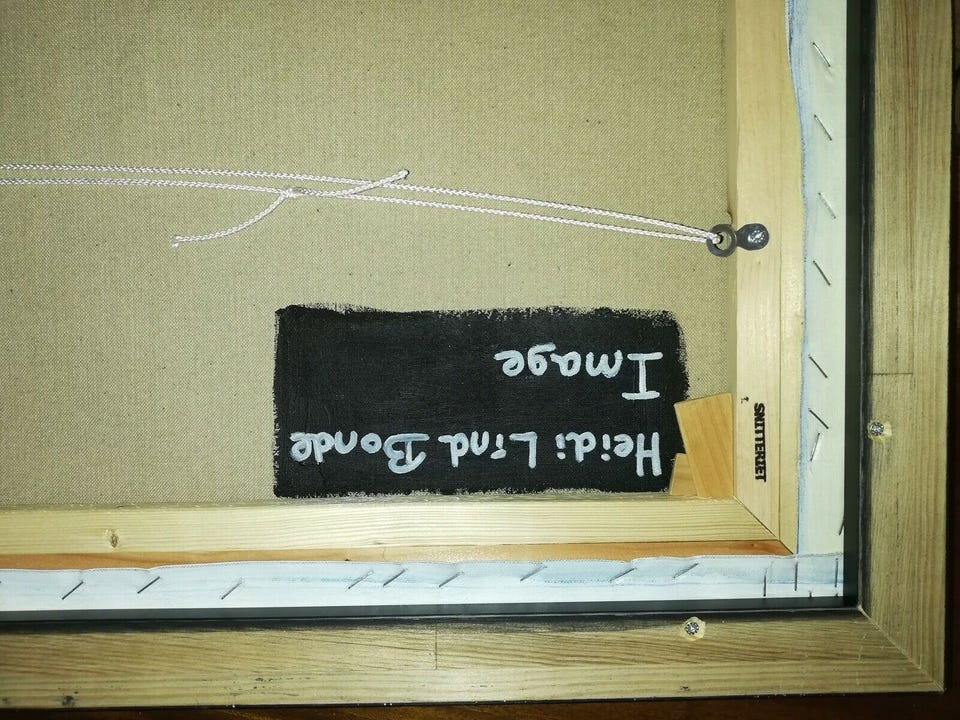 Heidi Lind Bonde
Image